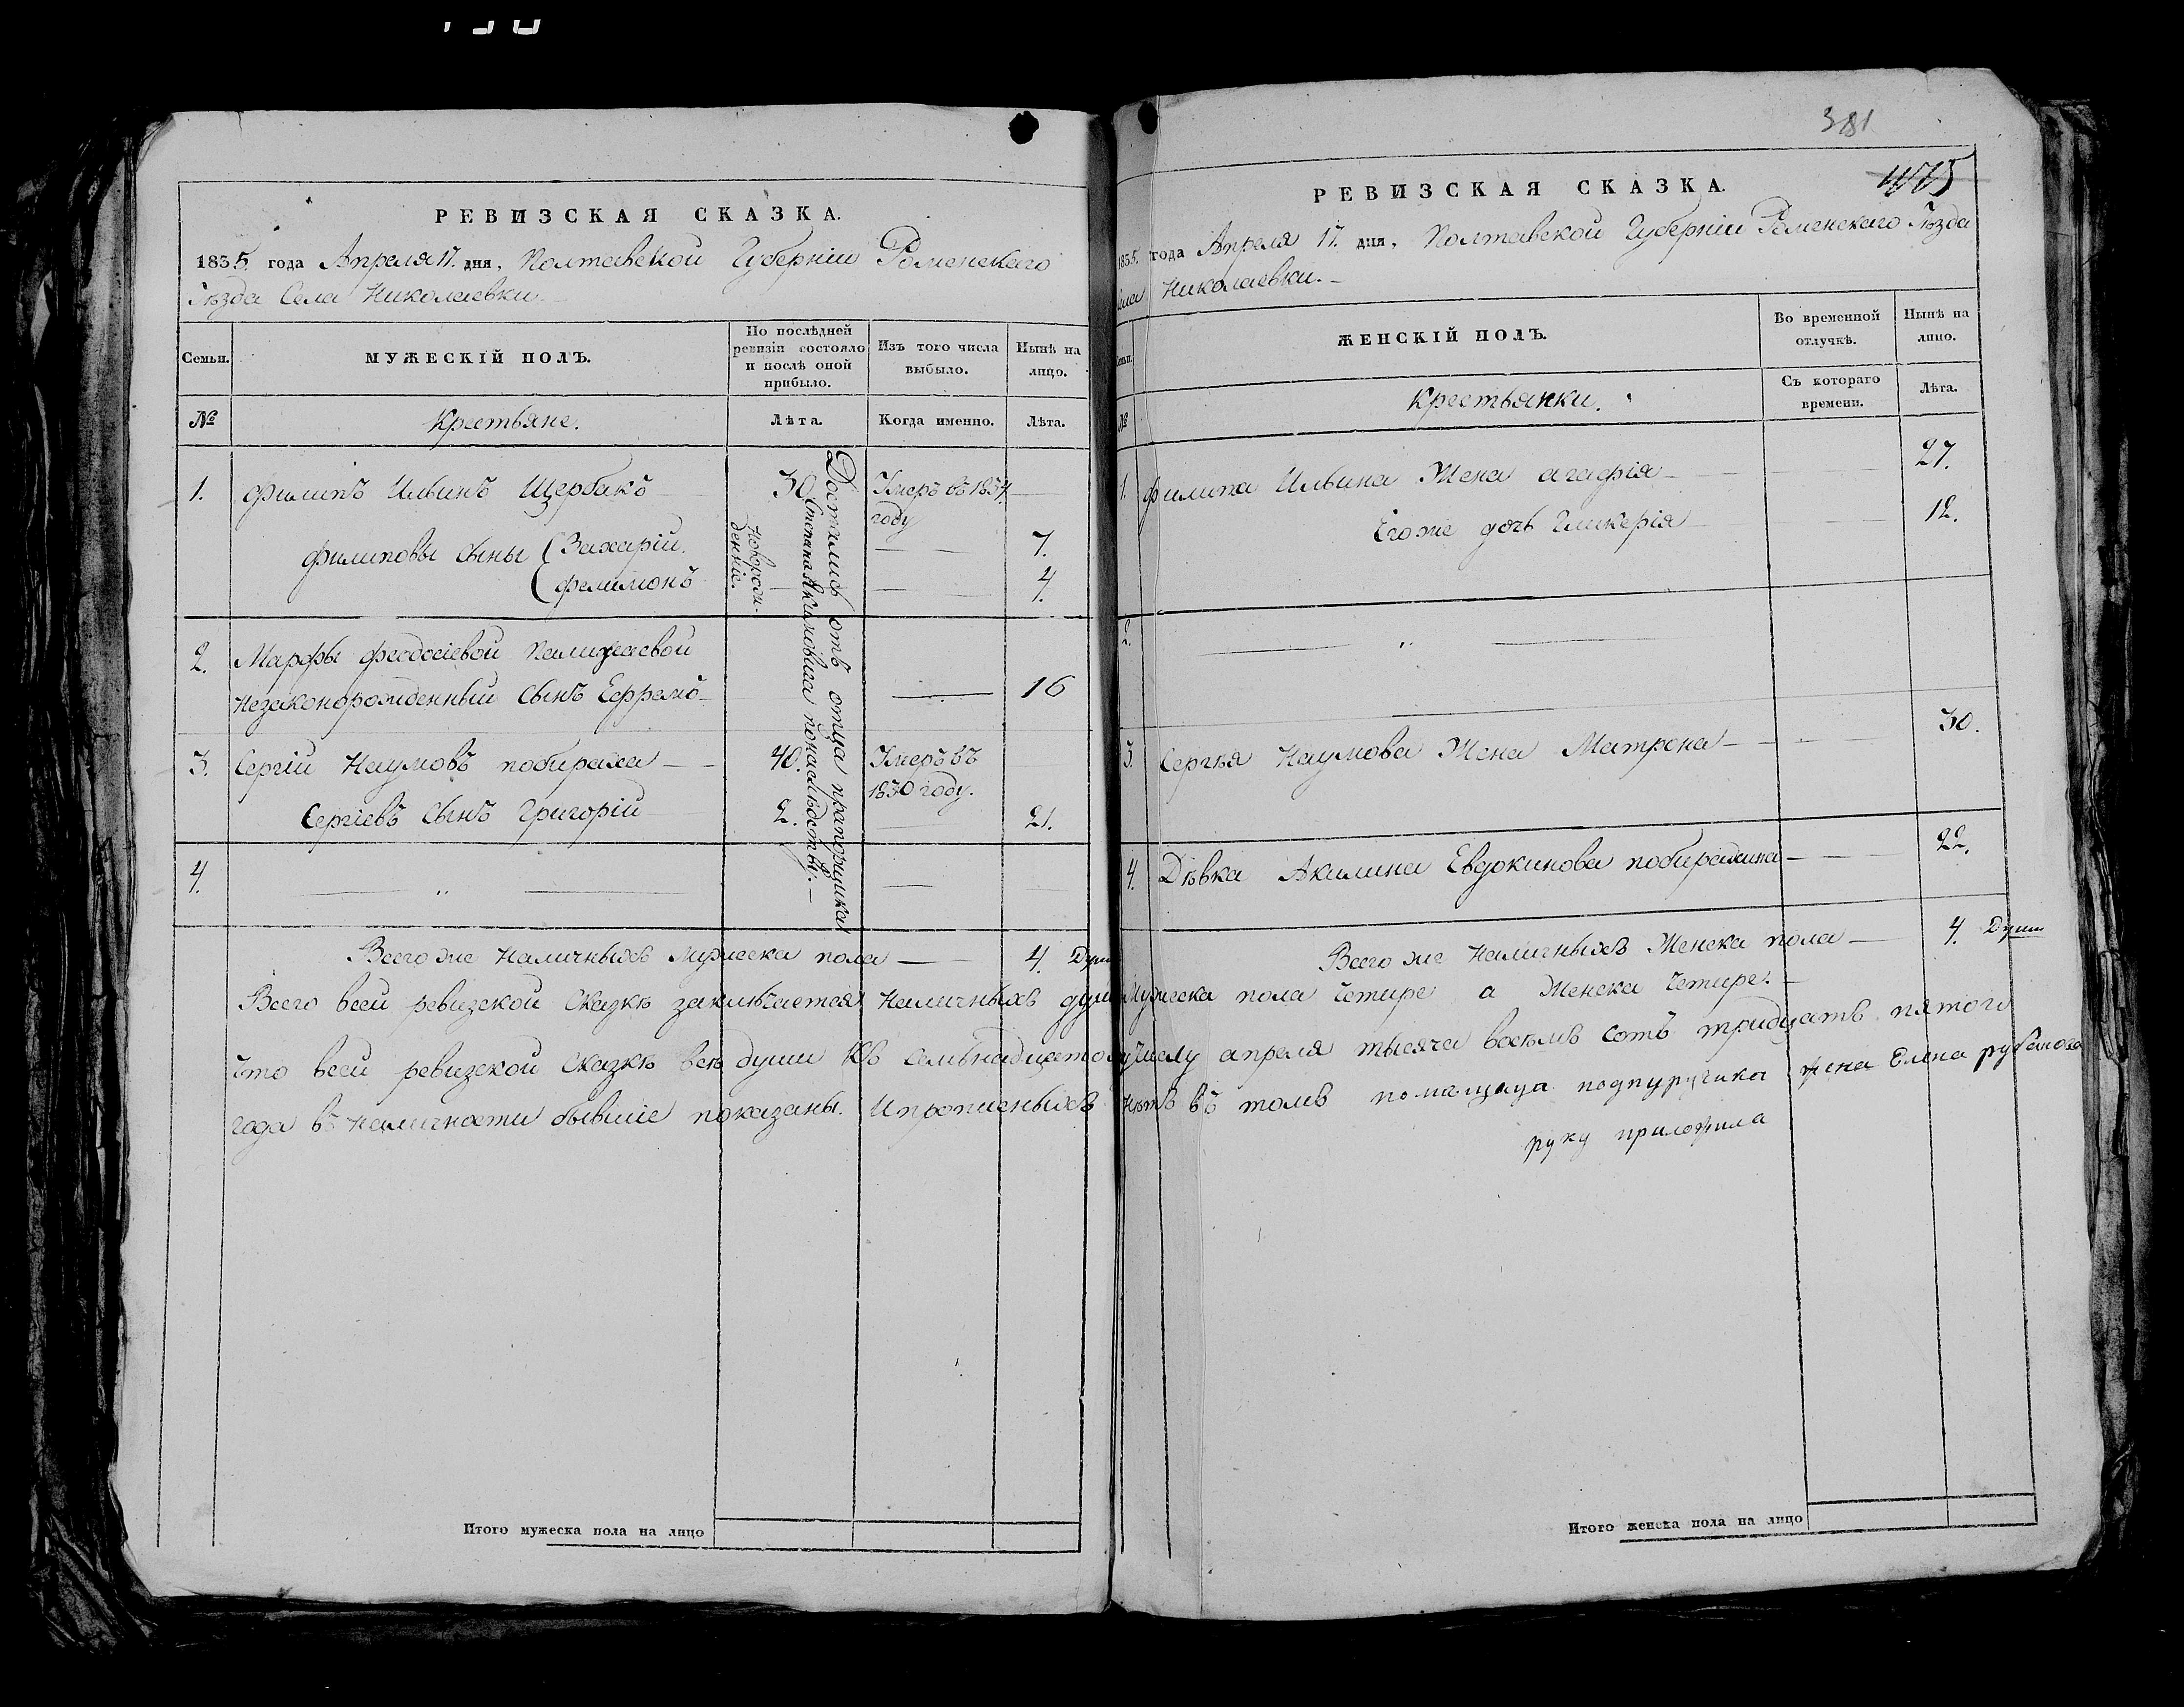 РЕВИЗСКАЯ СКАЗКА.
1835. года Апреля 17. дня, Полтавской Губернiи Роменскаго
Уѣзда Села Николаевки.
Семьи.
МУЖЕСКIЙ ПОЛЪ.
По послѣдней
ревизiи состояло
и послѣ оной
прибыло.
Изъ того числа
выбыло.
Нынѣ на
лицо.
№
Крестьяне.
Лѣта.
Когда именно.
Лѣта.
1. Филипъ Ильинъ Щербакъ 30. Умеръ въ 1834
году
Филиповы сыны { Захарiй. 7.
{ Филимонъ 4.
Новорож-
денные.
Достались отъ отца прапорщика
Степана по наслѣдству.
2. Марфы Феодосiевой
Незаконорожденный сынъ Ефремъ 16
3. Сергiй Наумовъ побиraха 40. Умеръ въ
1830 году.
Сергiевъ Сынъ Григорiй 2. 21.
4.
Всего же наличныхъ мужеска пола 4. Души
РЕВИЗСКАЯ СКАЗКА.
381
475
1835. года Апреля 17. дня, Полтавской Губернiи Роменскаго Уѣзда
Села Николаевки.
Семьи.
ЖЕНСКIЙ ПОЛЪ.
Во временной
отлучкѣ.
Нынѣ на
лицо.
№
Крестьянки.
Съ котораго
времени.
Лѣта.
1. Филипа Ильина Жена Агафiя 27.
Его же дочь Гликерiя 12.
2.
3. Сергѣя Наумова Жена Матрона 30.
4. Дѣвка Акилина Евдокимова побиражина 22.
Всего же наличныхъ Женска пола 4. Души
Всего всей ревизской сказкѣ заключается наличныхъ душъ Мужеска пола четире а Женска четире.
Что всей ревизской сказкѣ всѣ души къ семьнадцатому числу апреля тысяча восѣмь сотъ тридцать пятого
года въ наличности бывшiе показаны. И прописныхъ нѣтъ въ томъ помещица подпуручика жена Елена рубанова
руку приложила
Итого мужеска пола на лицо
Итого женска пола на лицо